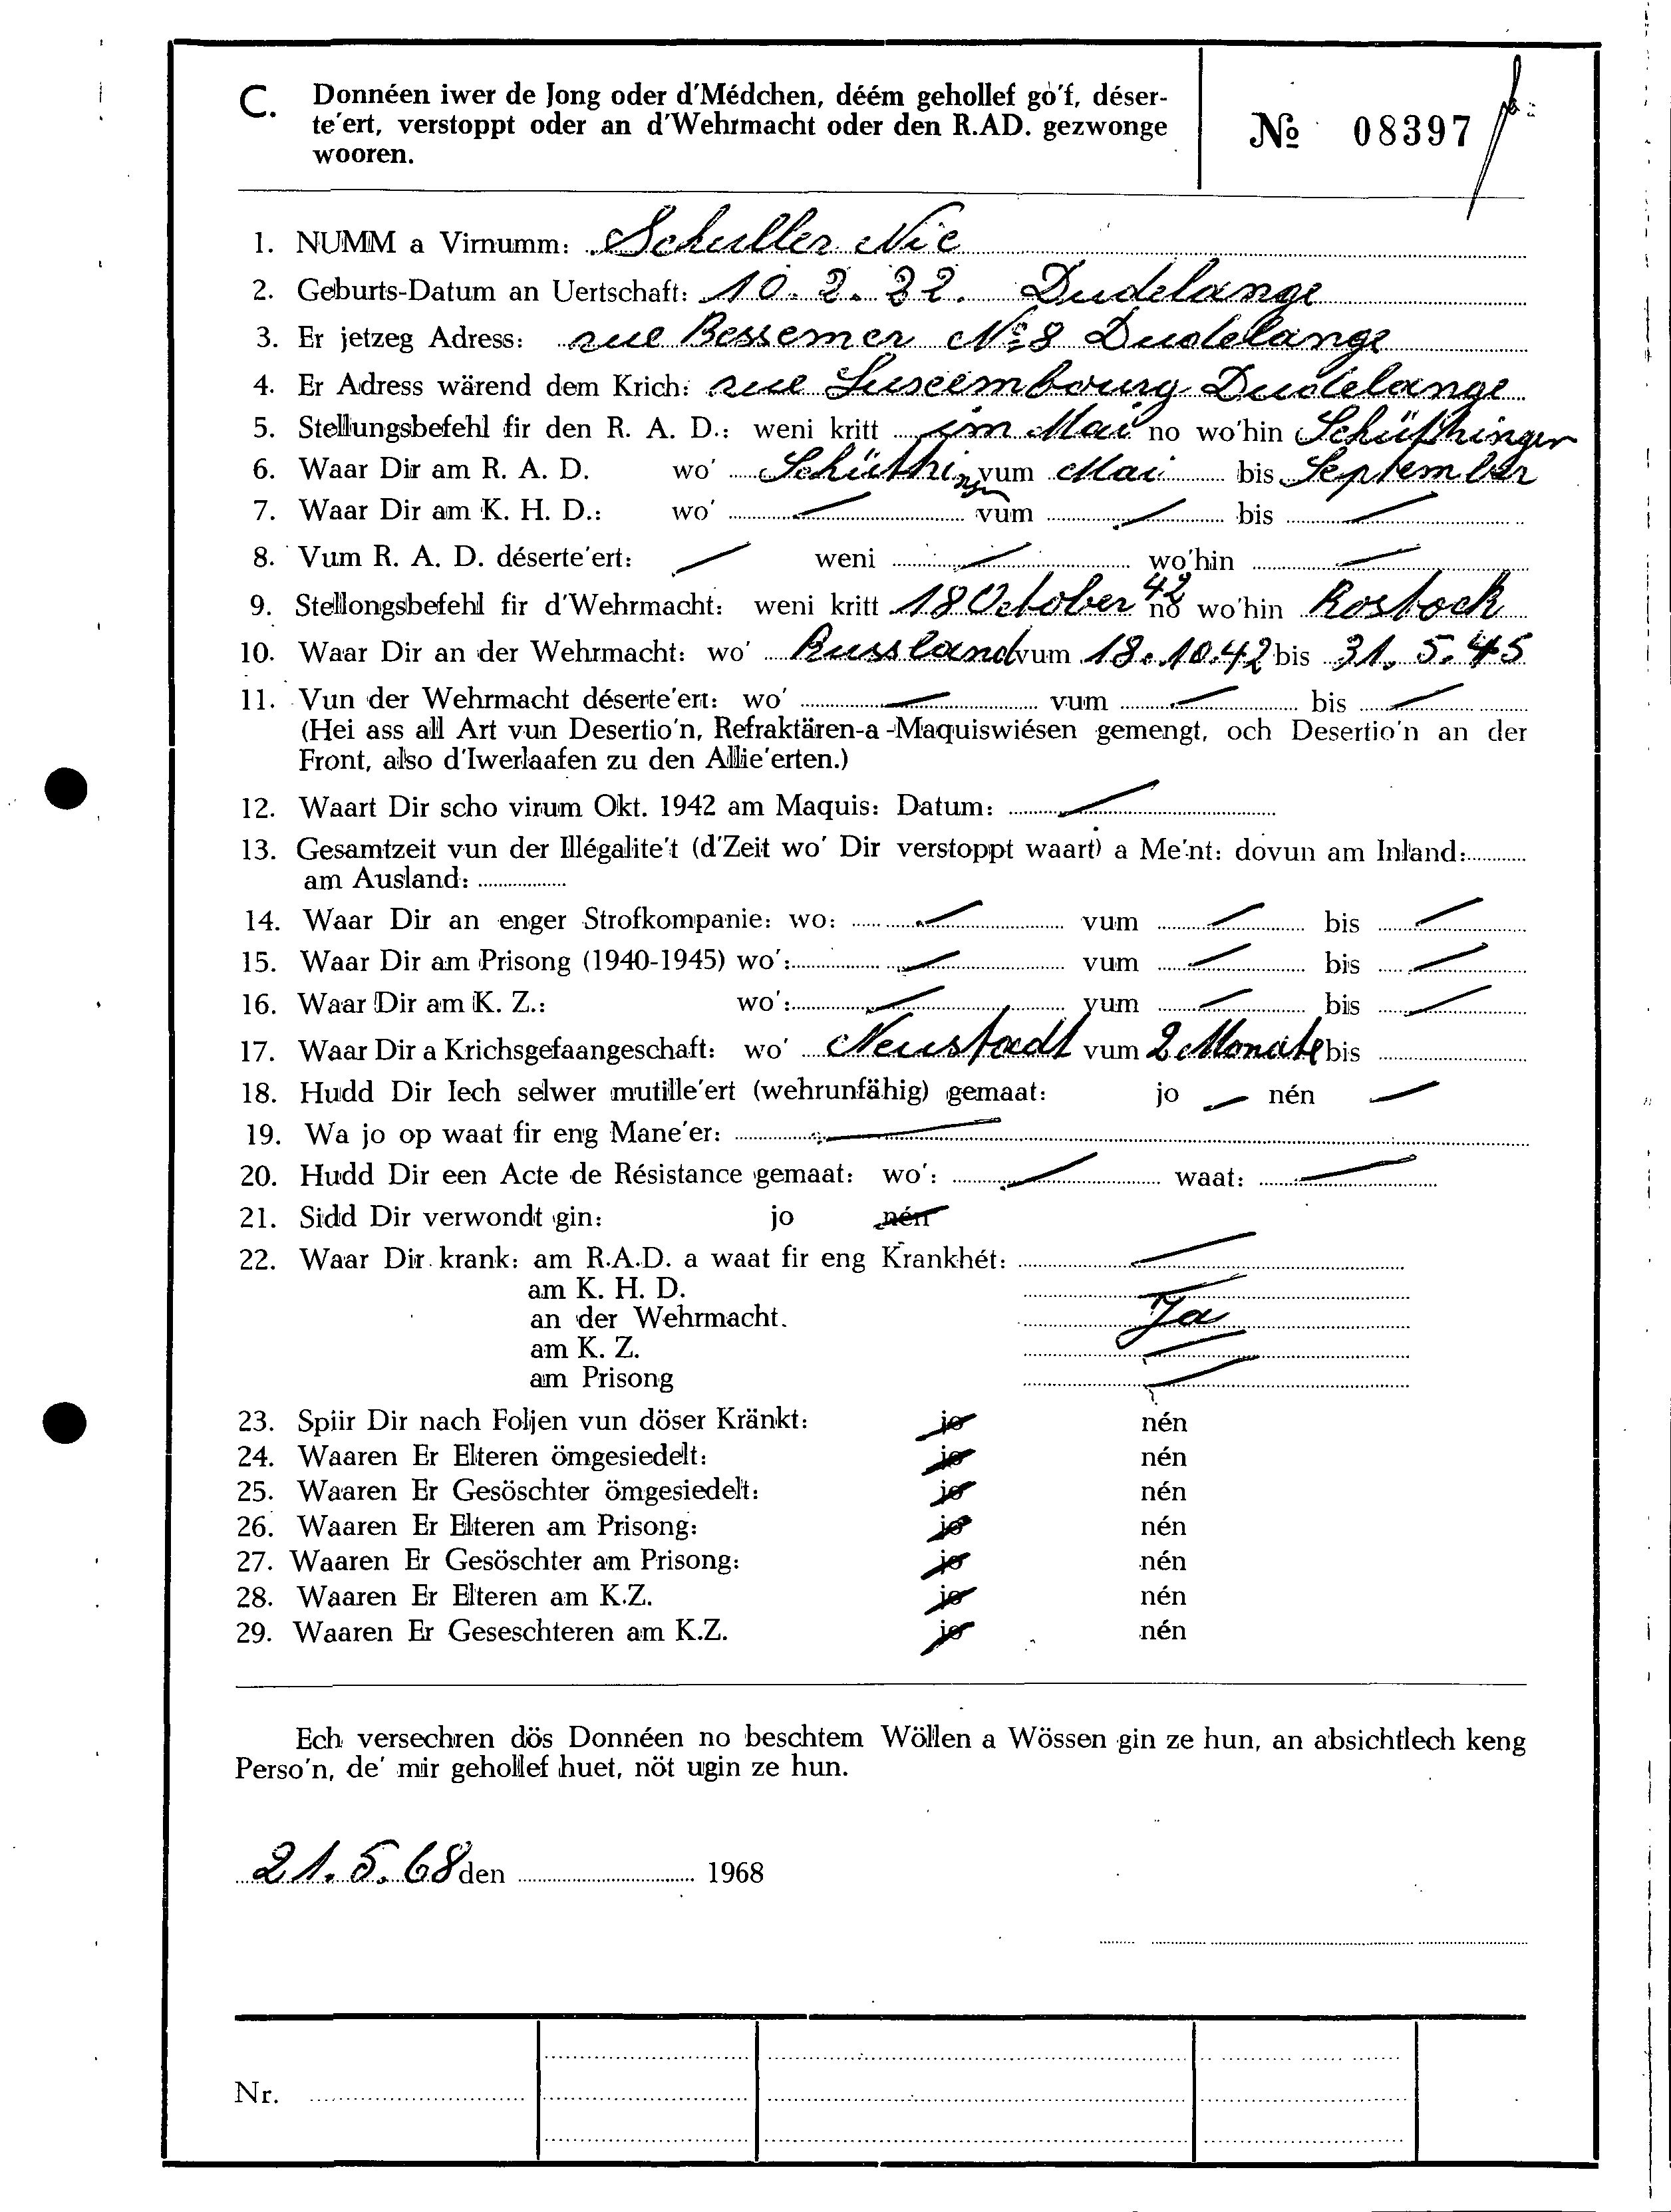 C. Donnéen iwer de Jong oder d'Médchen, déém gehollef go'f, déser-
te'ert, verstoppt oder an d'Wehrmacht oder den R.AD. gezwonge
wooren.
No 08397
1. NUMM a Virnumm: Schuller Nic
2. Geburts-Datum an Uertschaft: 10. 2. 22. Dudelange
3. Er jetzeg Adress: rue Bessemer No 8 Dudelange
4. Er Adress wärend dem Krich: rue Luxembourg Dudelange
5. Stellungsbefehl fir den R. A. D.: weni kritt im Mai no wo'hin
6. Waar Dir am R. A. D. wo' vum Mai bis September
7. Waar Dir am K. H. D.: wo' vum bis
8. Vum R. A. D. déserte'ert: weni wo'hin
9. Stellongsbefehl fir d'Wehrmacht: weni kritt 18 October 42 no wo'hin Rostock
10. Waar Dir an der Wehrmacht: wo' Russland vum 18.10.42 bis 31. 5. 45
11. Vun der Wehrmacht déserte'ert: wo' vum bis
(Hei ass all Art vun Desertio'n, Refraktären-a-Maquiswiésen gemengt, och Desertio'n an der
Front, also d'Iwerlaafen zu den Allie'erten.)
12. Waart Dir scho virum Okt. 1942 am Maquis: Datum:
13. Gesamtzeit vun der Illégalite't (d'Zeit wo' Dir verstoppt waart) a Me'nt: dovun am Inland:
am Ausland:
14. Waar Dir an enger Strofkompanie: wo: vum bis
15. Waar Dir am Prisong (1940-1945) wo': vum bis
16. Waar Dir am K. Z.: wo': vum bis
17. Waar Dir a Krichsgefaangeschaft: wo' Neustadt vum 2 Monate bis
18. Hudd Dir Iech selwer mutille'ert (wehrunfähig) gemaat: jo nén
19. Wa jo op waat fir eng Mane'er:
20. Hudd Dir een Acte de Résistance gemaat: wo': waat:
21. Sidd Dir verwondt gin: jo nén
22. Waar Dir krank: am R.A.D. a waat fir eng Krankhét:
am K. H. D.
an der Wehrmacht. Ja
am K. Z.
am Prisong
23. Spiir Dir nach Foljen vun döser Kränkt: jo nén
24. Waaren Er Elteren ömgesiedelt: jo nén
25. Waaren Er Gesöschter ömgesiedelt: jo nén
26. Waaren Er Elteren am Prisong: jo nén
27. Waaren Er Gesöschter am Prisong: jo nén
28. Waaren Er Elteren am K.Z. jo nén
29. Waaren Er Geseschteren am K.Z. jo nén
Ech versechren dös Donnéen no beschtem Wöllen a Wössen gin ze hun, an absichtlech keng
Perso'n, de' mir gehollef huet, nöt ugin ze hun.
21. 5. 68 den 1968
Nr.